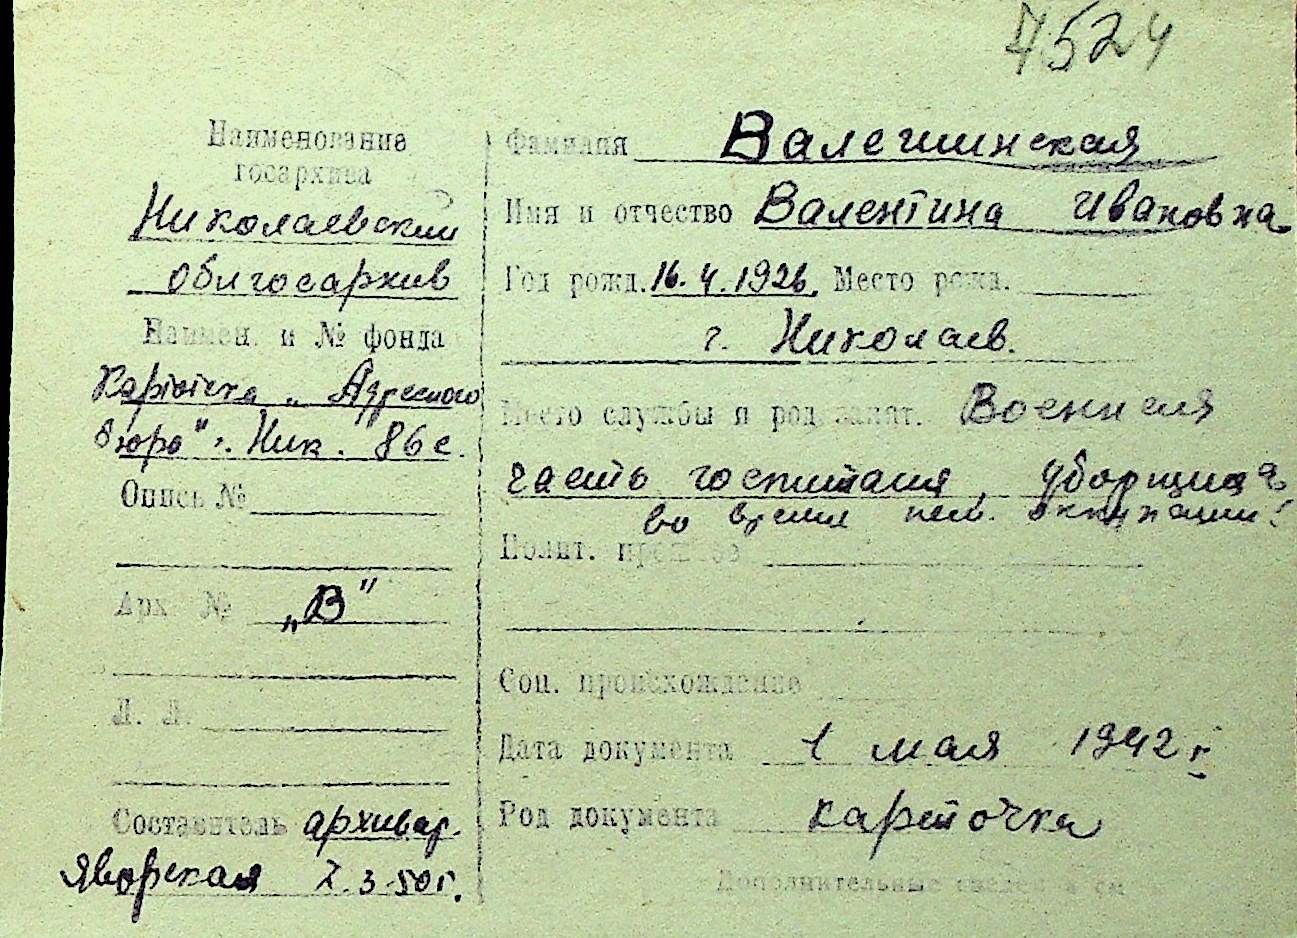 7524
Наименование
госархива
Николаевский
облгосархив
Наимен. и № фонда
Картотека „Адресного
бюро" г. Ник. 86с.
Опись №
Арх. № „В"
Л. Л.
Составитель архивар.
Яворская 7.3.50г.
Фамилия
Имя и отчество Валентина Ивановна
Год рожд. 16.4.1926. Место рожд.
г. Николаев.
Место службы и род занят. Военная
часть госпиталя, уборщица
во время нем. оккупации!
Полит. прошлое
Соц. происхождение
Дата документа 1 мая 1942 г.
Род документа карточка
Дополнительные сведения см